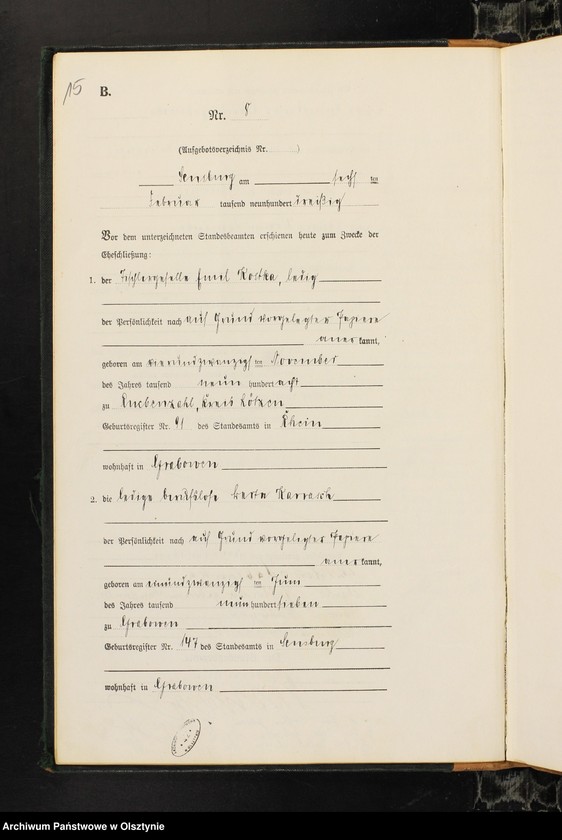 15
B.
Nr. 8
(Aufgebotsverzeichnis Nr. )
Sensburg am sechs ten
Februar tausend neunhundert dreißig
Vor dem unterzeichneten Standesbeamten erschienen heute zum Zwecke der
Eheschließung:
1. der Tischlergeselle Emil Kostka, ledig
der Persönlichkeit nach auf Grund vorgelegter Papiere
aner kannt,
geboren am vierundzwanzigs ten November
des Jahres tausend neun hundert acht
zu Kreis Lötzen
Geburtsregister Nr. 91 des Standesamts in Rhein
wohnhaft in Grabowen
2. die ledige berufslose Karrasch
der Persönlichkeit nach auf Grund vorgelegter Papiere
aner kannt,
geboren am einundzwanzigs ten Juni
des Jahres tausend neun hundert sieben
zu Grabowen
Geburtsregister Nr. 147 des Standesamts in Sensburg
wohnhaft in Grabowen
Archiwum Państwowe w Olsztynie